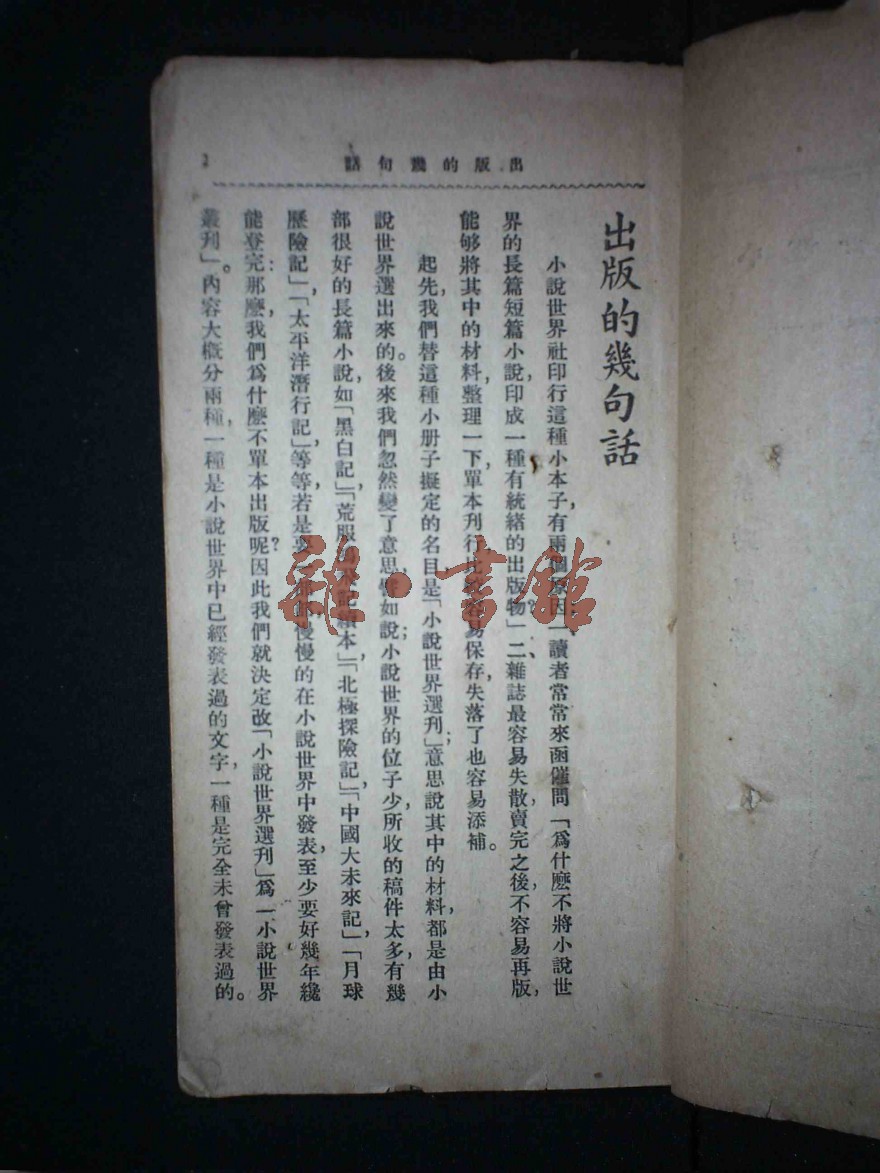 出版的幾句話
1
出版的幾句話
小說世界社印行這種小本子，有兩個原因：一、讀者常常來函催問「爲什麽不將小說世
界的長篇短篇小說印成一種有統緒的出版物？」二、雜誌最容易失散，賣完之後，不容易再版，
能够將其中的材料，整理一下，單本刊行，比較容易保存，失落了也容易添補。
起先，我們替這種小册子擬定的名目是「小說世界選刊」；意思說其中的材料，都是由小
說世界選出來的。後來我們忽然變了意思；譬如說，小說世界的位子少，所收的稿件太多，有幾
部很好的長篇小說，如「黑白記」，「荒服
記續本」，「北極探險記」，「中國大未來記」，「月球
歷險記」，「太平洋潛行記」，等等，若是要
慢慢的在小說世界中發表，至少要好幾年纔
能登完；那麽，我們爲什麽不單本出版呢？因此我們就決定改「小說世界選刊」爲「小說世界
叢刊」。內容大概分兩種，一種是小說世界中已經發表過的文字，一種是完全未曾發表過的。
雜·書館